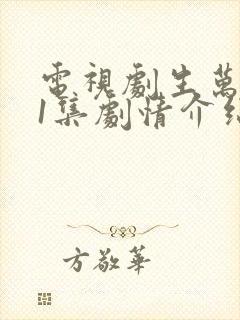 電視劇生萬
1集劇情介紹
方敬華